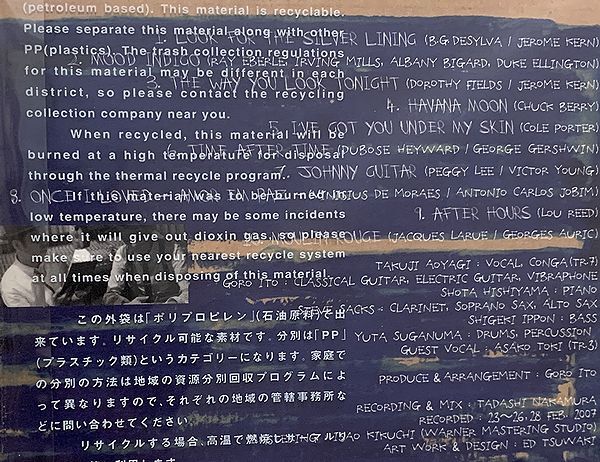 (petroleum based). This material is recyclable.
Please separate this material along with other
PP(plastics). The trash collection regulations
for this material may be different in each
district, so please contact the recycling
collection company near you.
When recycled, this material will be
burned at a high temperature for disposal
through the thermal recycle program.
If this material was to be burned in
low temperature, there may be some incidents
where it will give out dioxin gas, so please
make sure to use your nearest recycle system
at all times when disposing of this material.
この外袋は「ポリプロピレン」(石油原料)で出
来ています。リサイクル可能な素材です。分別は「PP」
(プラスチック類)というカテゴリーになります。家庭で
の分別の方法は地域の資源分別回収プログラムによ
って異なりますので、それぞれの地域の管轄事務所な
どに問い合わせてください。
リサイクルする場合、高温で燃焼し
1. LOOK FOR THE SILVER LINING (B.G. DESYLVA / JEROME KERN)
2. MOOD INDIGO (RAY EBERLE, IRVING MILLS, ALBANY BIGARD, DUKE ELLINGTON)
3. THE WAY YOU LOOK TONIGHT (DOROTHY FIELDS / JEROME KERN)
4. HAVANA MOON (CHUCK BERRY)
5. I'VE GOT YOU UNDER MY SKIN (COLE PORTER)
6. TIME AFTER TIME (DUBOSE HEYWARD / GEORGE GERSHWIN)
7. JOHNNY GUITAR (PEGGY LEE / VICTOR YOUNG)
8. ONCE I LOVED - AMOR EM PAZ - (VINICIUS DE MORAES / ANTONIO CARLOS JOBIM)
9. AFTER HOURS (LOU REED)
10. MOULIN ROUGE (JACQUES LARUE / GEORGES AURIC)
TAKUJI AOYAGI : VOCAL, CONGA (TR.7)
GORO ITO : CLASSICAL GUITAR, ELECTRIC GUITAR, VIBRAPHONE
SHOTA HISHIYAMA : PIANO
STEVE SACKS : CLARINET, SOPRANO SAX, ALTO SAX
SHIGEKI IPPON : BASS
YUTA SUGANUMA : DRUMS, PERCUSSION
GUEST VOCAL : ASAKO TOKI (TR.3)
PRODUCE & ARRANGEMENT : GORO ITO
RECORDING & MIX : TADASHI NAKAMURA
RECORDED : 23~26, 28 FEB. 2007
KIKUCHI (WARNER MASTERING STUDIO)
ART WORK & DESIGN : ED TSUWAKI